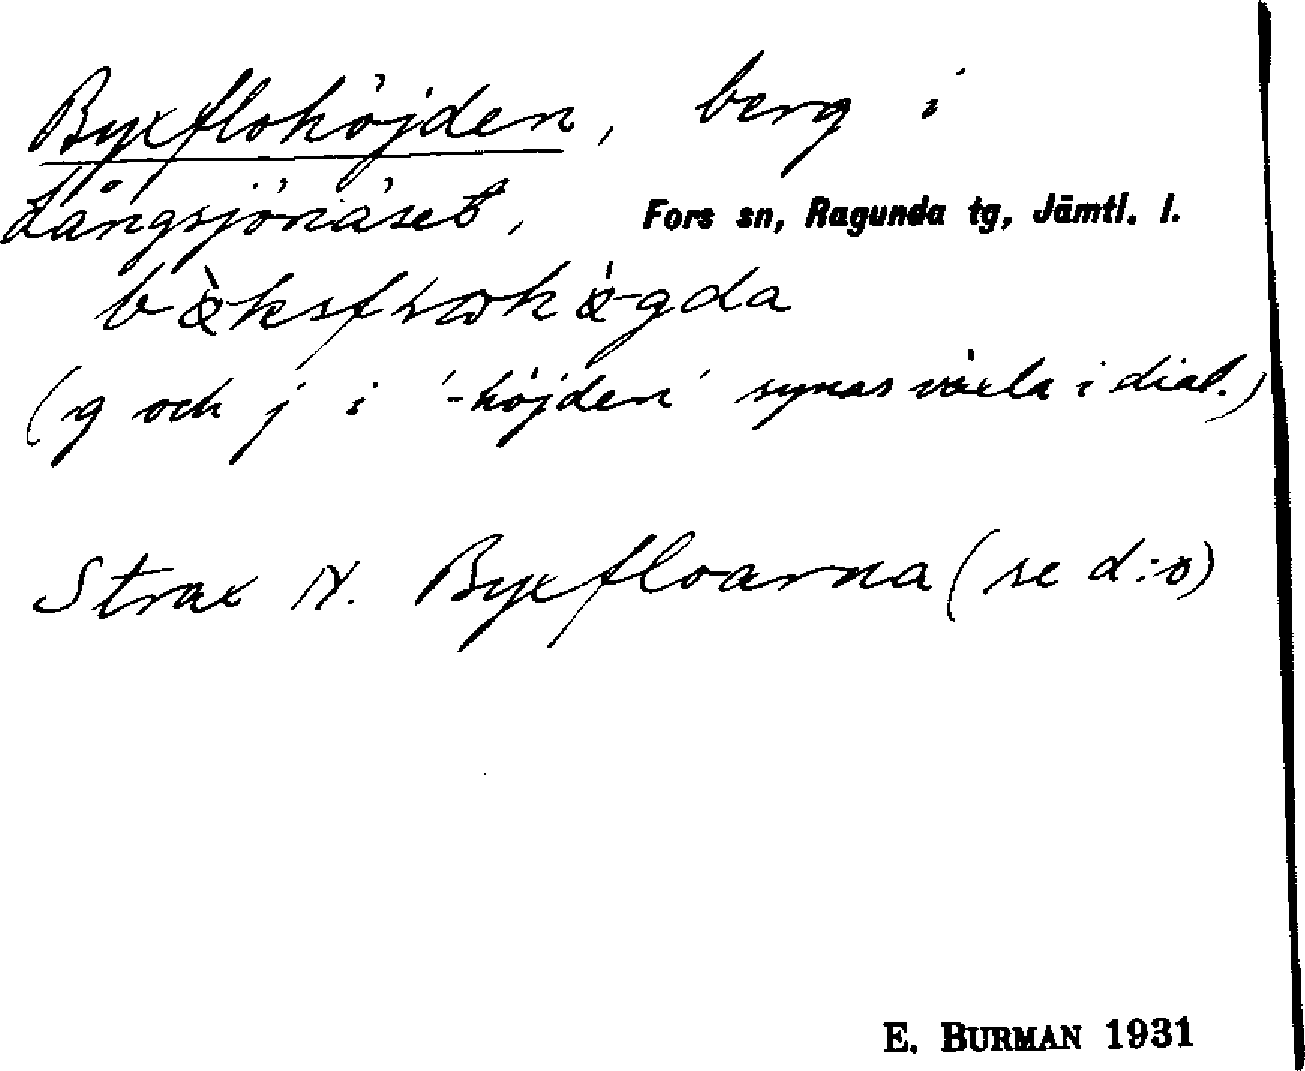 Byxflohöjden, berg i
Långsjönäset, Fors sn, Ragunda tg, Jämtl. l.
(g och j i '-höjden' synas växla i dial.)
Strax N. Byxfloarna (se d:o)
E. BURMAN 1931